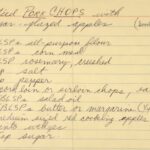 PORK CHOPS with
glazed apples
BLSPs all-purpose flour
BLSPs corn meal
SP rosemary, crushed
SP salt
pepper
pork loin or sirloin chops,
BLSPs salad oil
BLSPs butter or margarine
medium sized red cooking apples
into wedges
up sugar